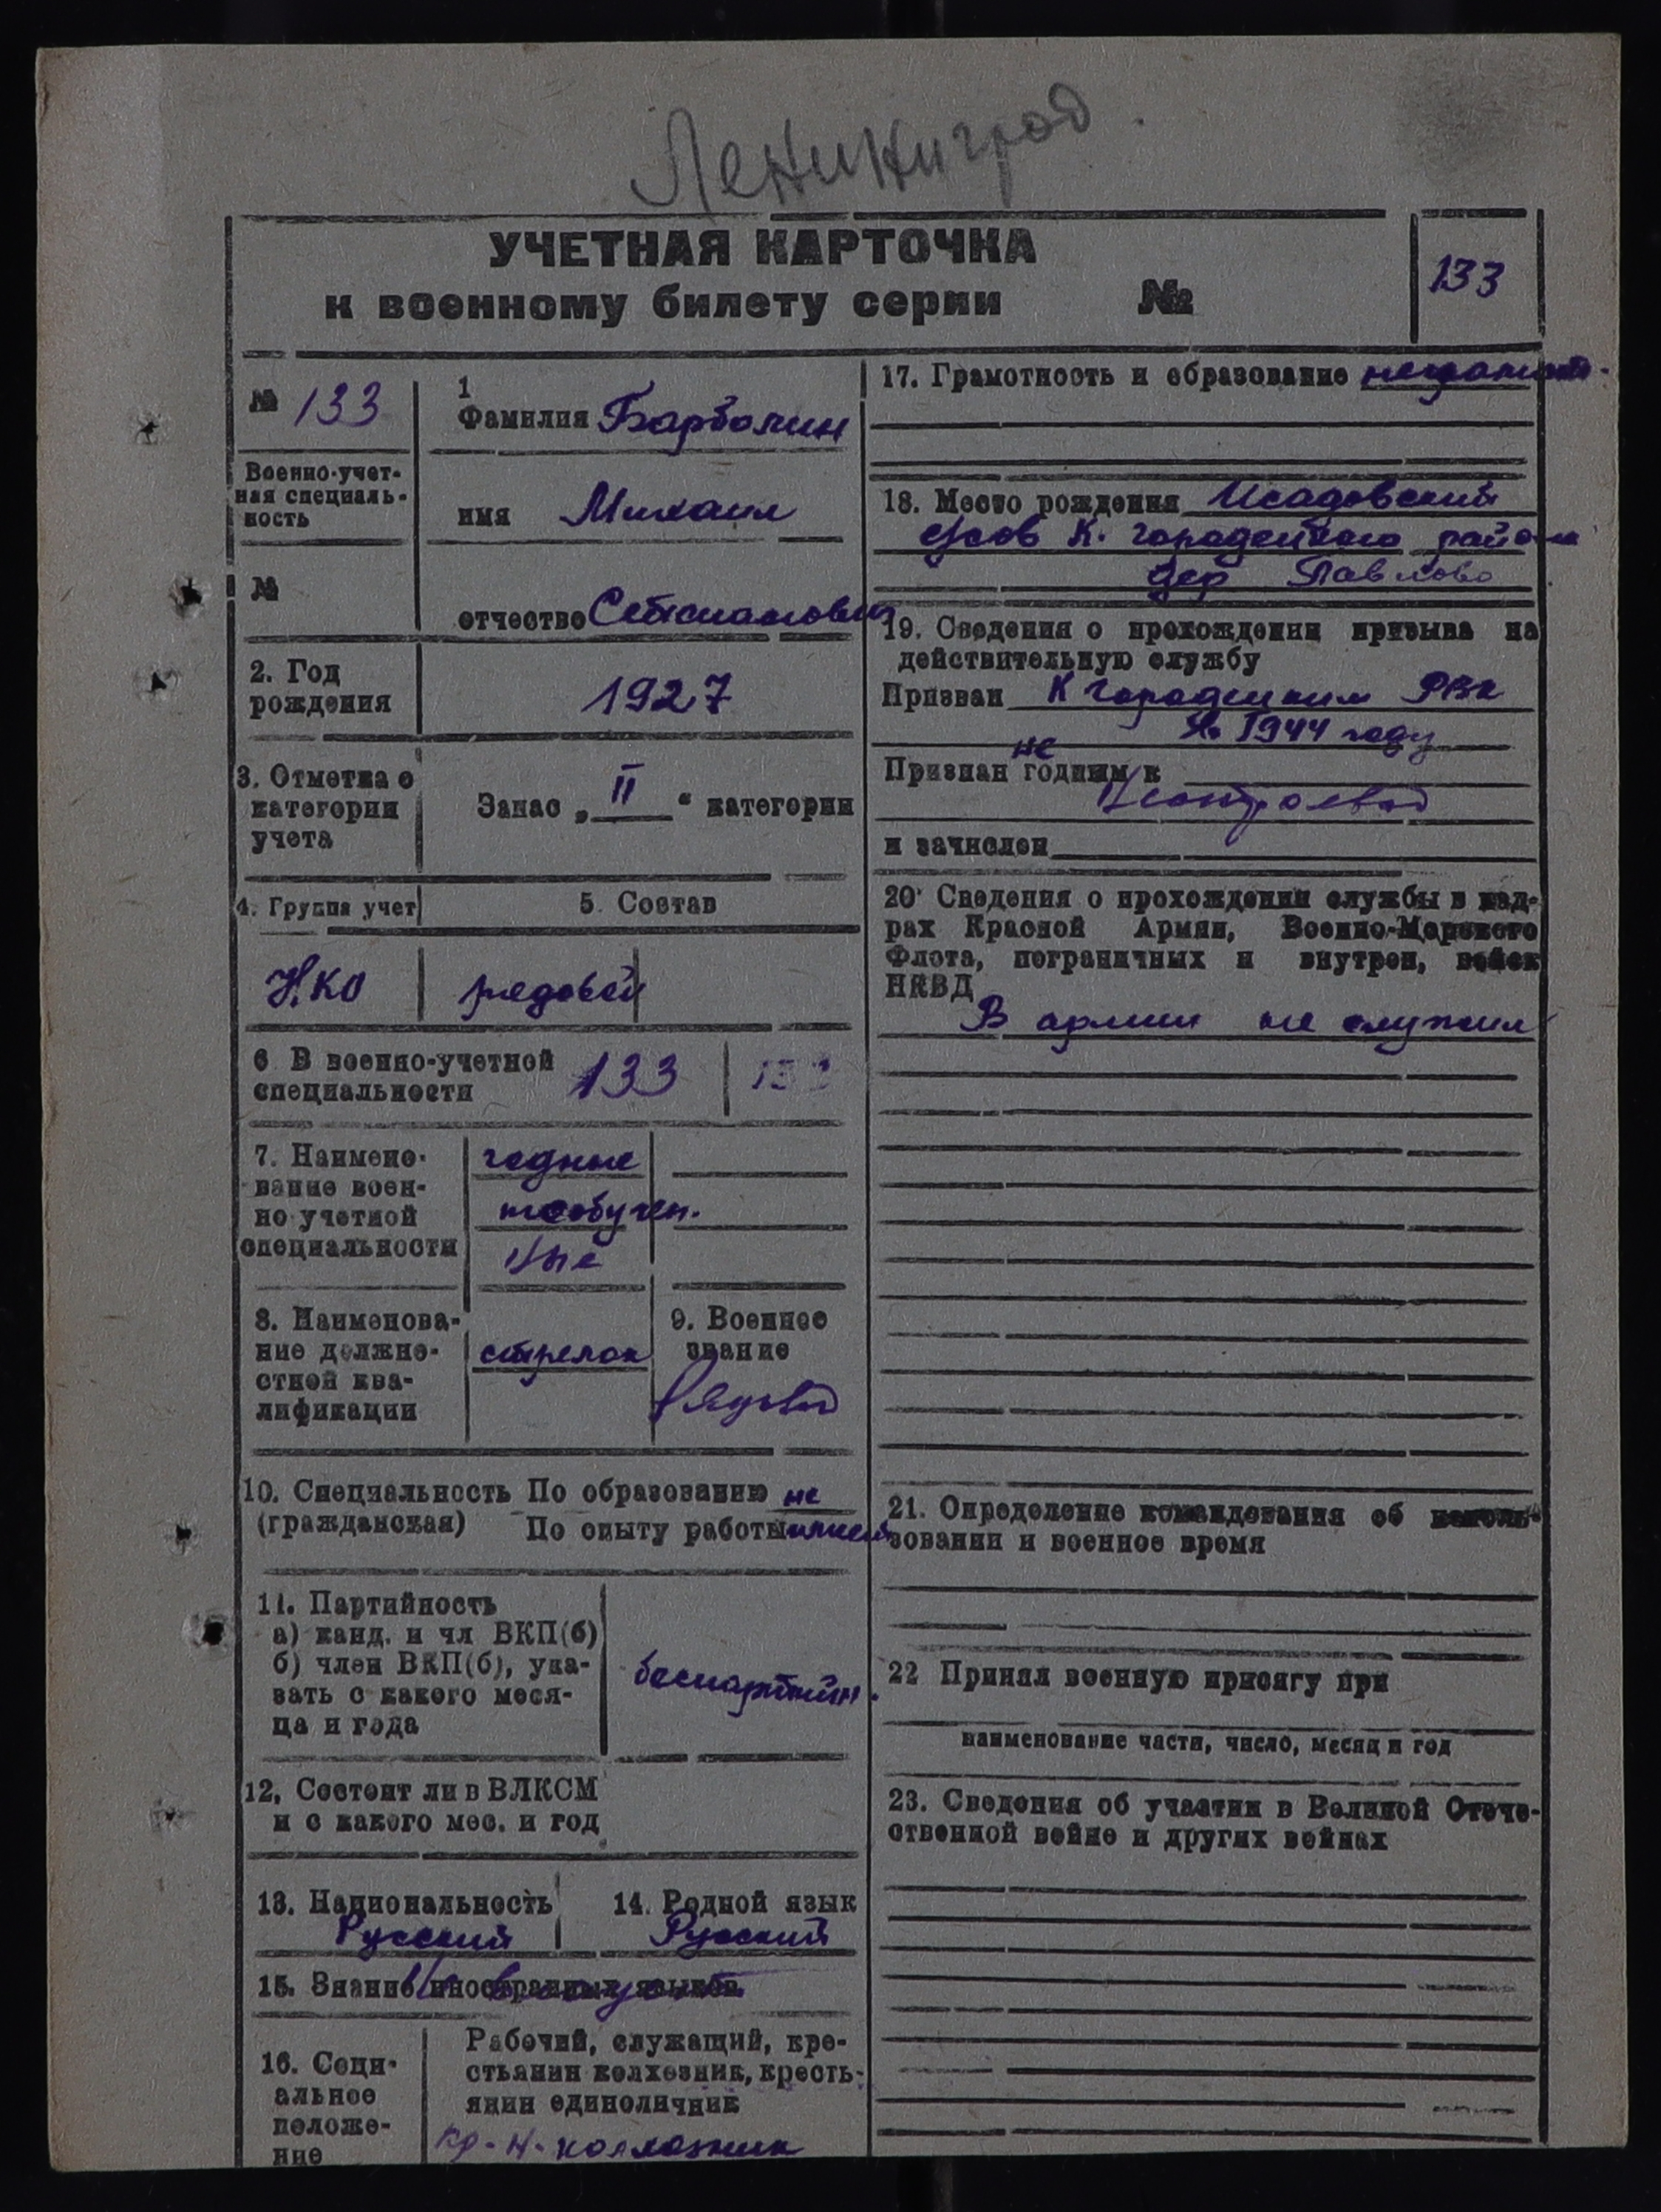 Ленинград
УЧЕТНАЯ КАРТОЧКА
к военному билету серии №
133
№ 133
1
Фамилия Барболин
Военно-учет-
ная специаль-
ность
имя Михаил
№
отчество
2. Год
рождения
1927
3. Отметка о
категории
учета
Запас „ II " категории
4. Группа учет
5. Состав
НКО
рядовой
6 В военно-учетной
специальности
133
133
7. Наимено-
вание воен-
но учетной
специальности
годные
необучен.
ные
8. Наименова-
ние должно-
стной ква-
лификации
стрелок
9. Военное
звание
Рядовой
10. Специальность По образованию не
(гражданская) По опыту работы имеет
11. Партийность
а) канд. и чл ВКП(б)
б) член ВКП(б), ука-
зать с какого меся-
ца и года
беспартийн.
12, Состоит ли в ВЛКСМ
и с какого мес. и год
13. Национальность
Русский
14. Родной язык
Русский
15. Знание иностранных языков
16. Соци-
альное
положе-
ние
Рабочий, служащий, кре-
стьянин колхозник, кресть-
янин единоличник
кр-н-колхозник
17. Грамотность и образование неграмотн.
18. Место рождения Исадовский
с/сов К. Городецкого района
дер Павлово
19. Сведения о прохождении призыва на
действительную службу
Призван К Городецким РВК
в 1944 году
не
Признан годным к
Нестроевой
и зачислен
20 Сведения о прохождении службы в кад-
рах Красной Армии, Военно-Морского
Флота, пограничных и внутрен, войск
НКВД
В армии не служил
21. Определение командования об исполь-
зовании и военное время
22 Принял военную присягу при
наименование части, число, месяц и год
23. Сведения об участии в Великой Отече-
ственной войне и других войнах